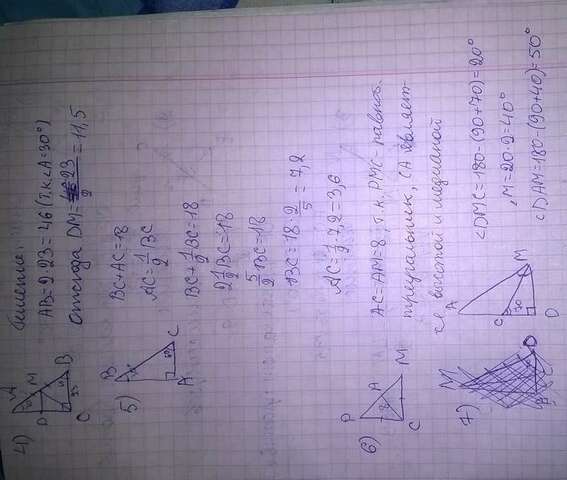 4)
Решение:
AB=2·23=46 (т.к.<A=30°)
Отсюда DM=23/2=11,5
A
D
M
B
C
5)
B
C
A
BC+AC=18
AC=1/2BC
BC+1/2BC=18
2 1/2BC=18
5/2BC=18
BC=18·2/5=7,2
AC=1/2·7,2=3,6
6)
P
A
M
C
8
AC=AM=8, т.к. PMC равноб.
треугольник, CA являет-
ся высотой и медианой
7)
M
A
C
M
D
<DMC=180-(90+70)=20°
,M=20·2=40°
<DAM=180-(90+40)=50°